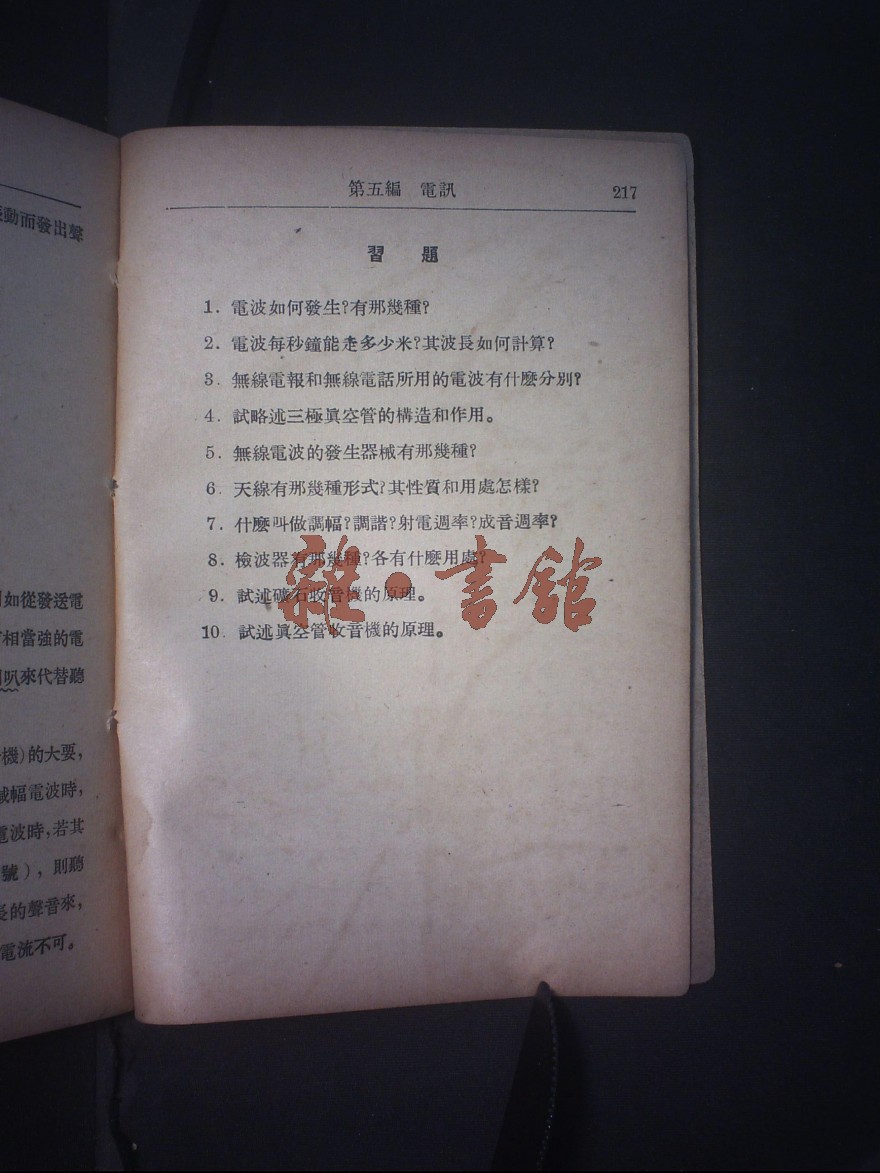 動而發出聲
如從發送電
相當強的電
叭來代替聽
機)的大要,
幅電波時,
電波時,若其
號),則聽
長的聲音來,
電流不可。
第五編 電訊 217
習 題
1. 電波如何發生?有那幾種?
2. 電波每秒鐘能走多少米?其波長如何計算?
3. 無線電報和無線電話所用的電波有什麽分別?
4. 試略述三極眞空管的構造和作用。
5. 無線電波的發生器械有那幾種?
6. 天線有那幾種形式?其性質和用處怎樣?
7. 什麽叫做調幅?調諧?射電週率?成音週率?
8. 檢波器有那幾種?各有什麽用處?
9. 試述礦石收音機的原理。
10. 試述眞空管收音機的原理。
雜·書館